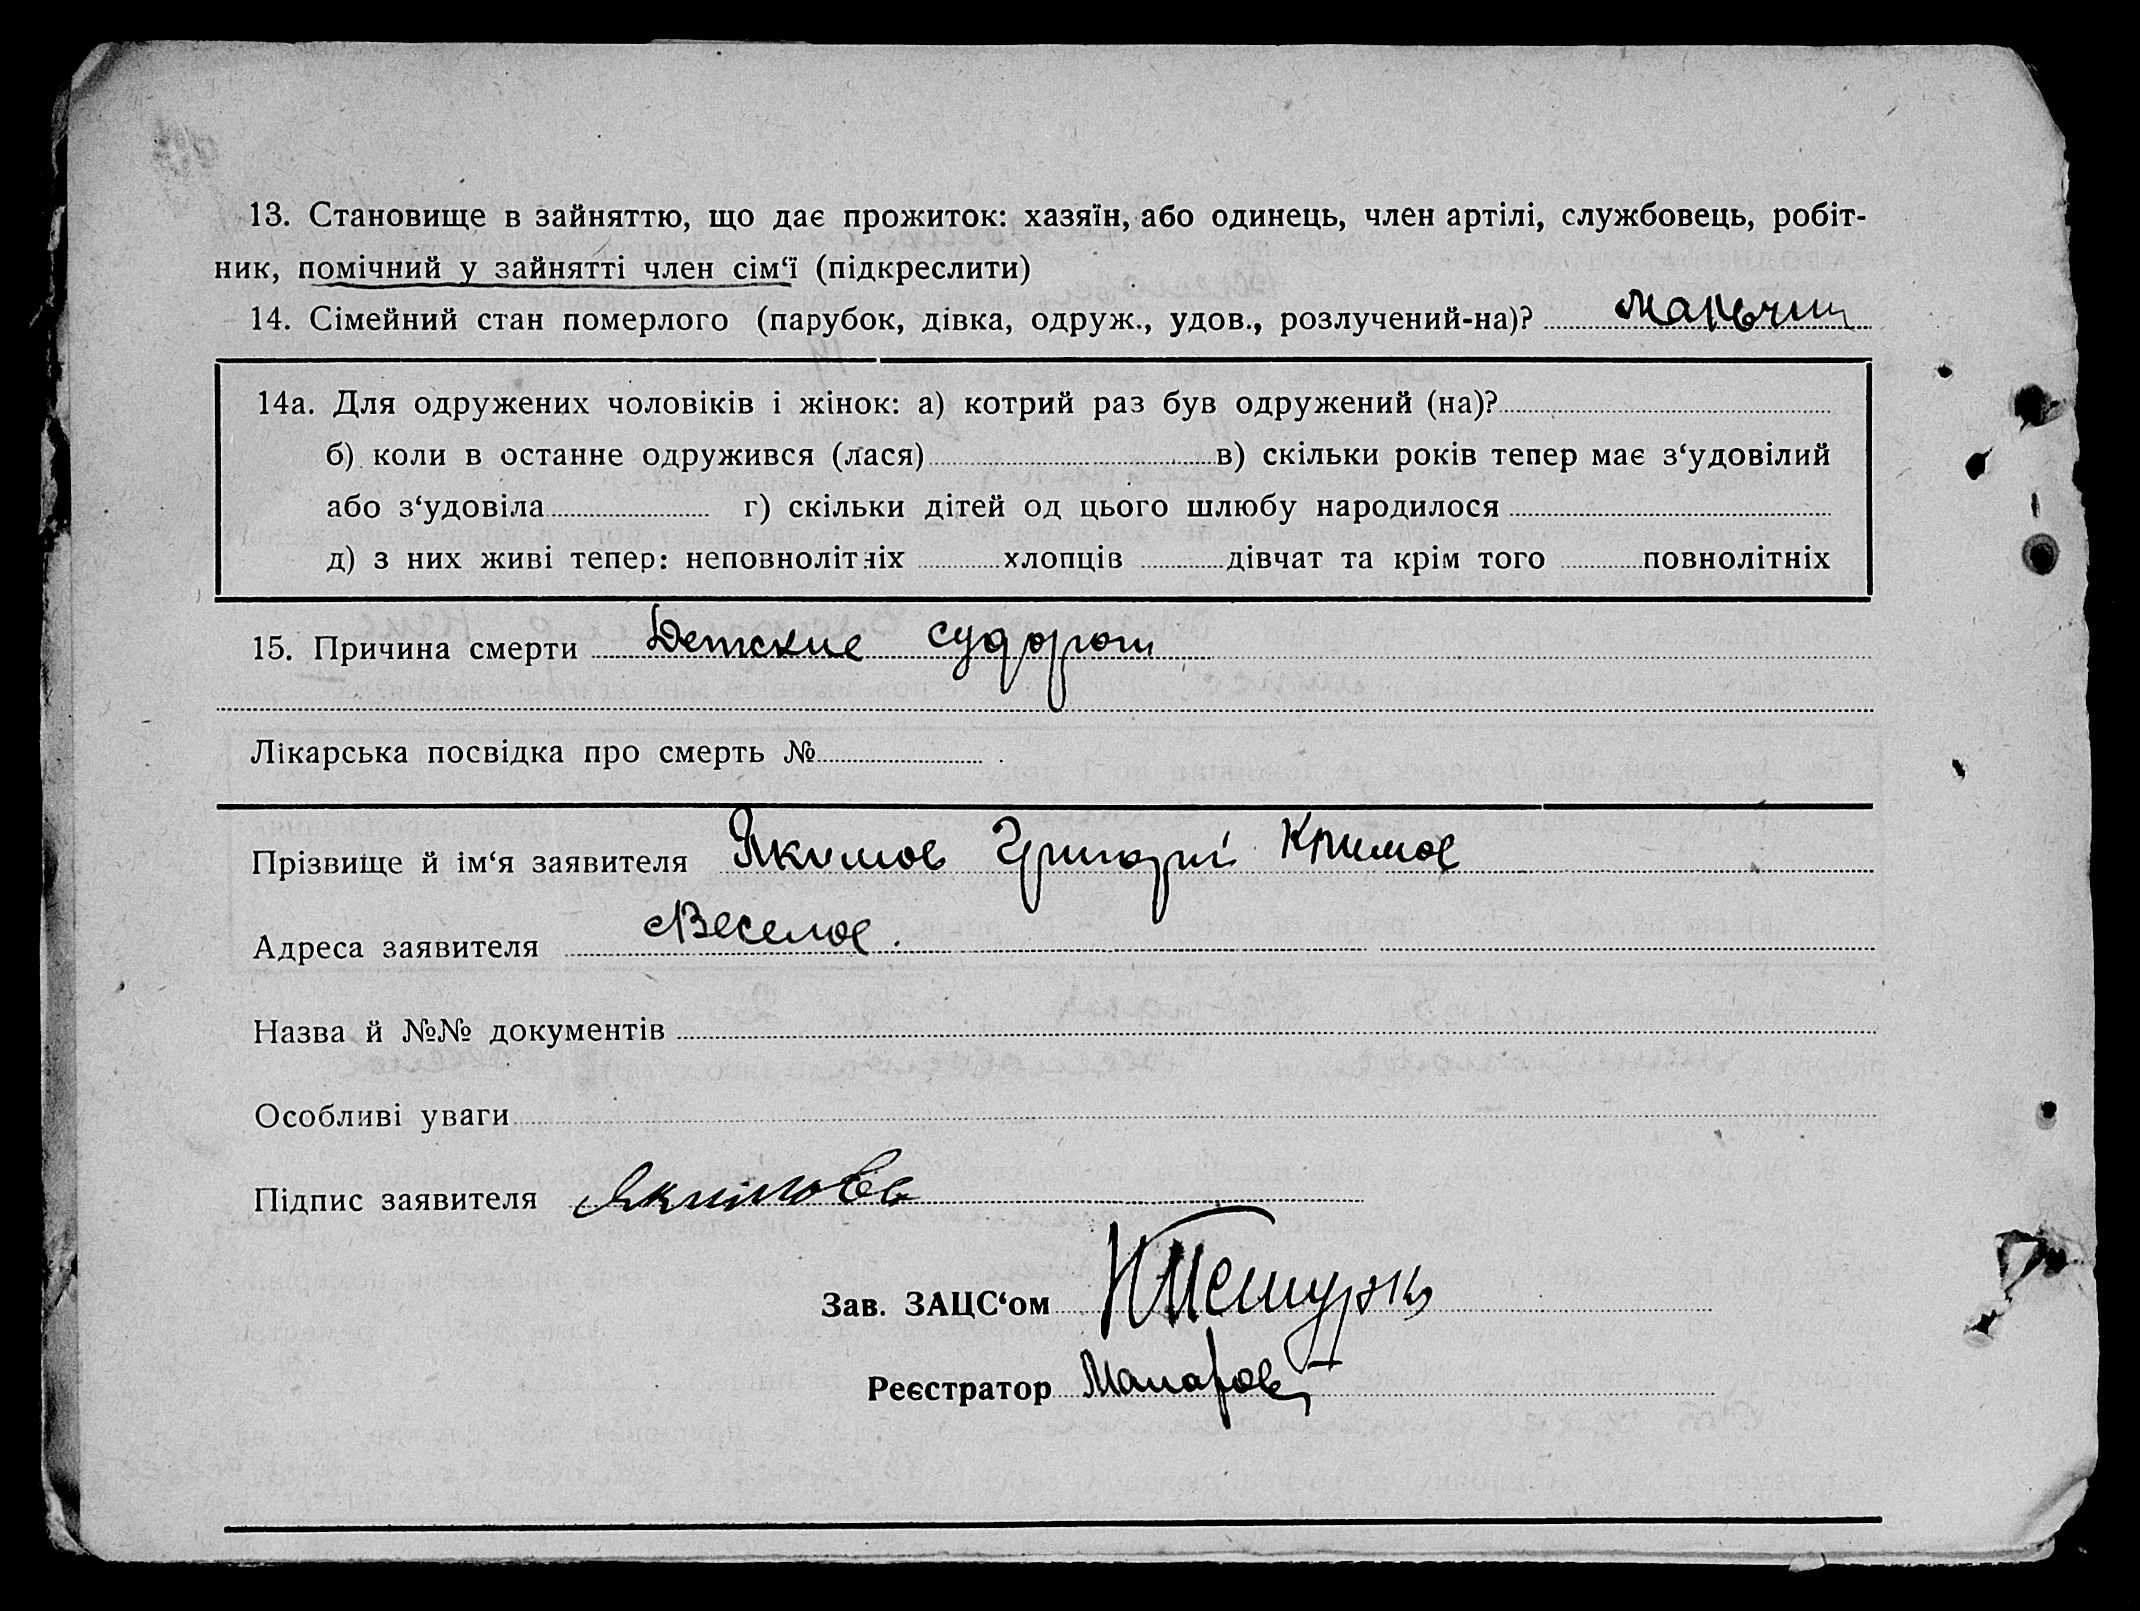 13. Становище в зайняттю, що дає прожиток: хазяїн, або одинець, член артілі, службовець, робіт-
ник, помічний у зайнятті член сім‘ї (підкреслити)
14. Сімейний стан померлого (парубок, дівка, одруж., удов., розлучений-на)?
14а. Для одружених чоловіків і жінок: а) котрий раз був одружений (на)?
б) коли в останне одружився (лася) в) скільки років тепер має з‘удовілий
або з‘удовіла г) скільки дітей од цього шлюбу народилося
д) з них живі тепер: неповнолітніх хлопців дівчат та крім того повнолітніх
15. Причина смерти Детские судороги
Лікарська посвідка про смерть №
Прізвище й ім‘я заявителя Якимов Григорий
Адреса заявителя Веселое.
Назва й №№ документів
Особливі уваги
Підпис заявителя Якимовъ
Зав. ЗАЦС‘ом
Реєстратор